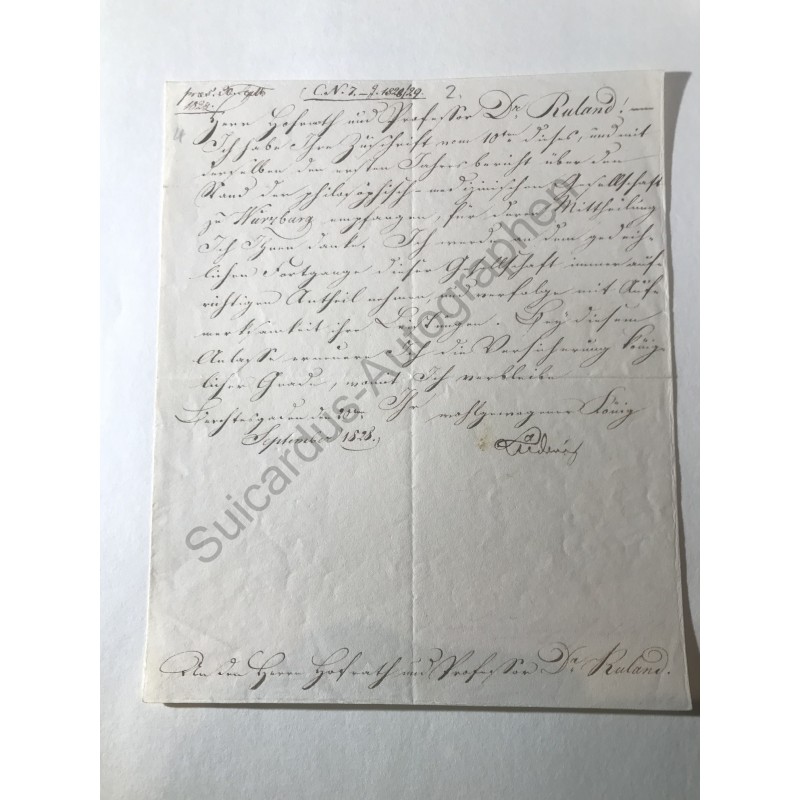 præs. 30. Septb. (C.N. 7. – J. 1828/29. 2.
1828.
Herrn Hofrath und Professor Dr. Ruland! —
Ich habe Ihre Zuschrift vom 10ten dieses, und mit
derselben den ersten Jahresbericht über den
Stand der philosophisch-medizinischen Gesellschaft
zu Würzburg empfangen, für deren Mittheilung
Ich Ihnen danke. Ich werde an dem gedeih-
lichen Fortgange dieser Gesellschaft immer auf-
richtigen Antheil nehmen, und verfolge mit Auf-
merksamkeit ihre Leistungen. Bey diesem
Anlasse erneuere Ich die Versicherung König-
licher Gnade, womit Ich verbleibe
Berchtesgaden den Ihr wohlgewogener König
September 1828. Ludwig
An den Herrn Hofrath und Professor Dr. Ruland.
Suicardus-Autographen